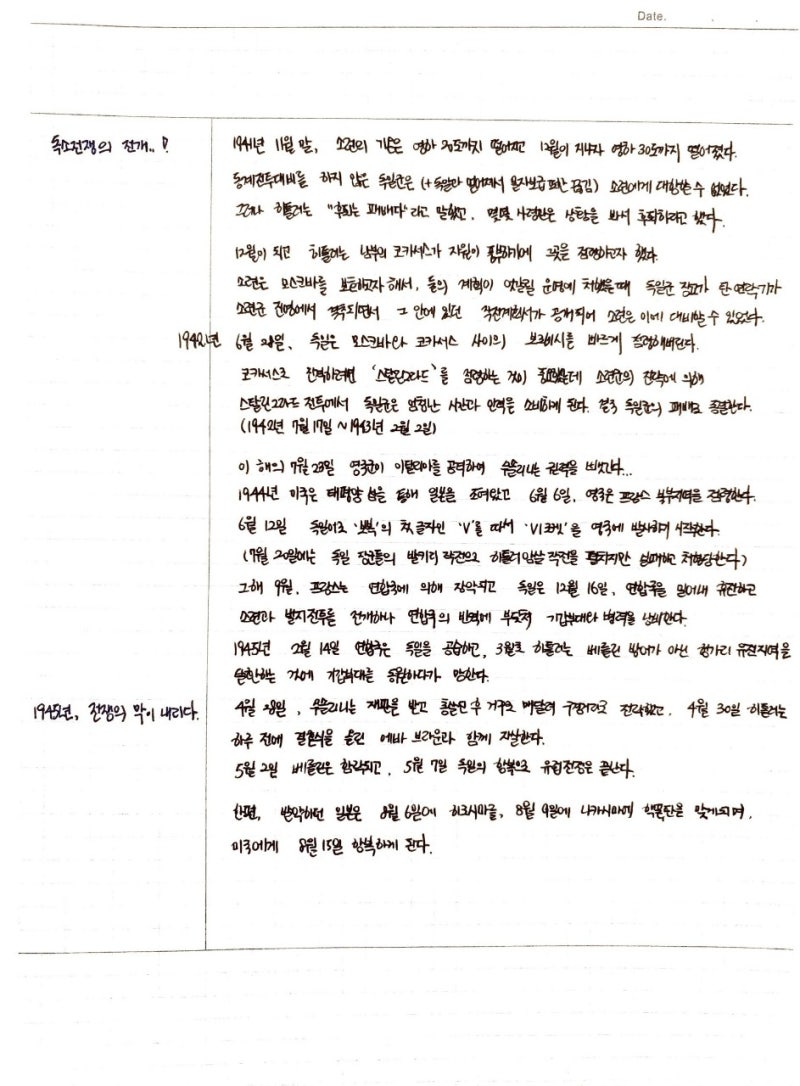 Date.
독소전쟁의 전개..!
1941년 11월 말, 소련의 기온은 영하 20도까지 떨어지고 12월이 지나자 영하 30도까지 떨어졌다.
동계전투대비를 하지 않은 독일군은 (+독일과 멀어져서 물자보급 또한 끊김) 소련에게 대항할 수 없었다.
그러나 히틀러는 "후퇴는 패배다"라고 말했고, 몇몇 사령관은 상황을 봐서 후퇴하라고 했다.
12월이 되고 히틀러는 남부의 코카서스가 자원이 풍부하기에 그곳을 점령하고자 했다.
소련은 모스크바를 보호하고자 해서, 둘의 계획이 엇갈릴 운명에 처했을 때 독일군 장교가 탄 연락기가
소련군 진영에서 격추되면서 그 안에 있던 작전계획서가 공개되어 소련은 이에 대비할 수 있었다.
1942년 6월 28일, 독일은 모스크바와 코카서스 사이의 보로네시를 빠르게 점령해버린다.
코카서스로 진격하려면 '스탈린그라드'를 점령하는 것이 중요했는데 소련군의 전략에 의해
스탈린그라드 전투에서 독일군은 엄청난 시간과 인력을 소비하게 된다. 결국 독일군의 패배로 종결한다.
(1942년 7월 17일 ~ 1943년 2월 2일)
이 해의 7월 23일 영국군이 이탈리아를 공격하여 무솔리니는 권력을 빼앗긴다...
1944년 미국은 태평양 섬을 통해 일본을 조여왔고 6월 6일, 영국은 프랑스 북부지역을 점령한다.
6월 12일 독일어로 '보복'의 첫 글자인 'V'를 따서 'V1로켓'을 영국에 발사하기 시작한다.
(7월 20일에는 독일 장군들의 발키리 작전으로 히틀러 암살 작전을 펼치지만 실패하고 처형당한다)
그해 9월, 프랑스는 연합국에 의해 장악되고 독일은 12월 16일, 연합국을 밀어내 유전하고
소련과 벌지전투를 전개하나 연합국의 반격에 부딪혀 기갑부대와 병력을 상실한다.
1945년 2월 14일 연합국은 독일을 공습하고, 3월초 히틀러는 베를린 방어가 아닌 헝가리 유전지역을
탈환하는 것에 기갑부대를 동원하다가 망한다.
1945년, 전쟁의 막이 내리다.
4월 28일, 무솔리니는 재판을 받고 총살된 후 거꾸로 매달려 구경거리로 전락했고, 4월 30일 히틀러는
하루 전에 결혼식을 올린 에바 브라운과 함께 자살한다.
5월 2일 베를린은 함락되고, 5월 7일 독일의 항복으로 유럽전쟁은 끝난다.
한편, 발악하던 일본은 8월 6일에 히로시마를, 8월 9일에 나가사키에 핵폭탄을 맞게되며,
미국에게 8월 15일 항복하게 된다.